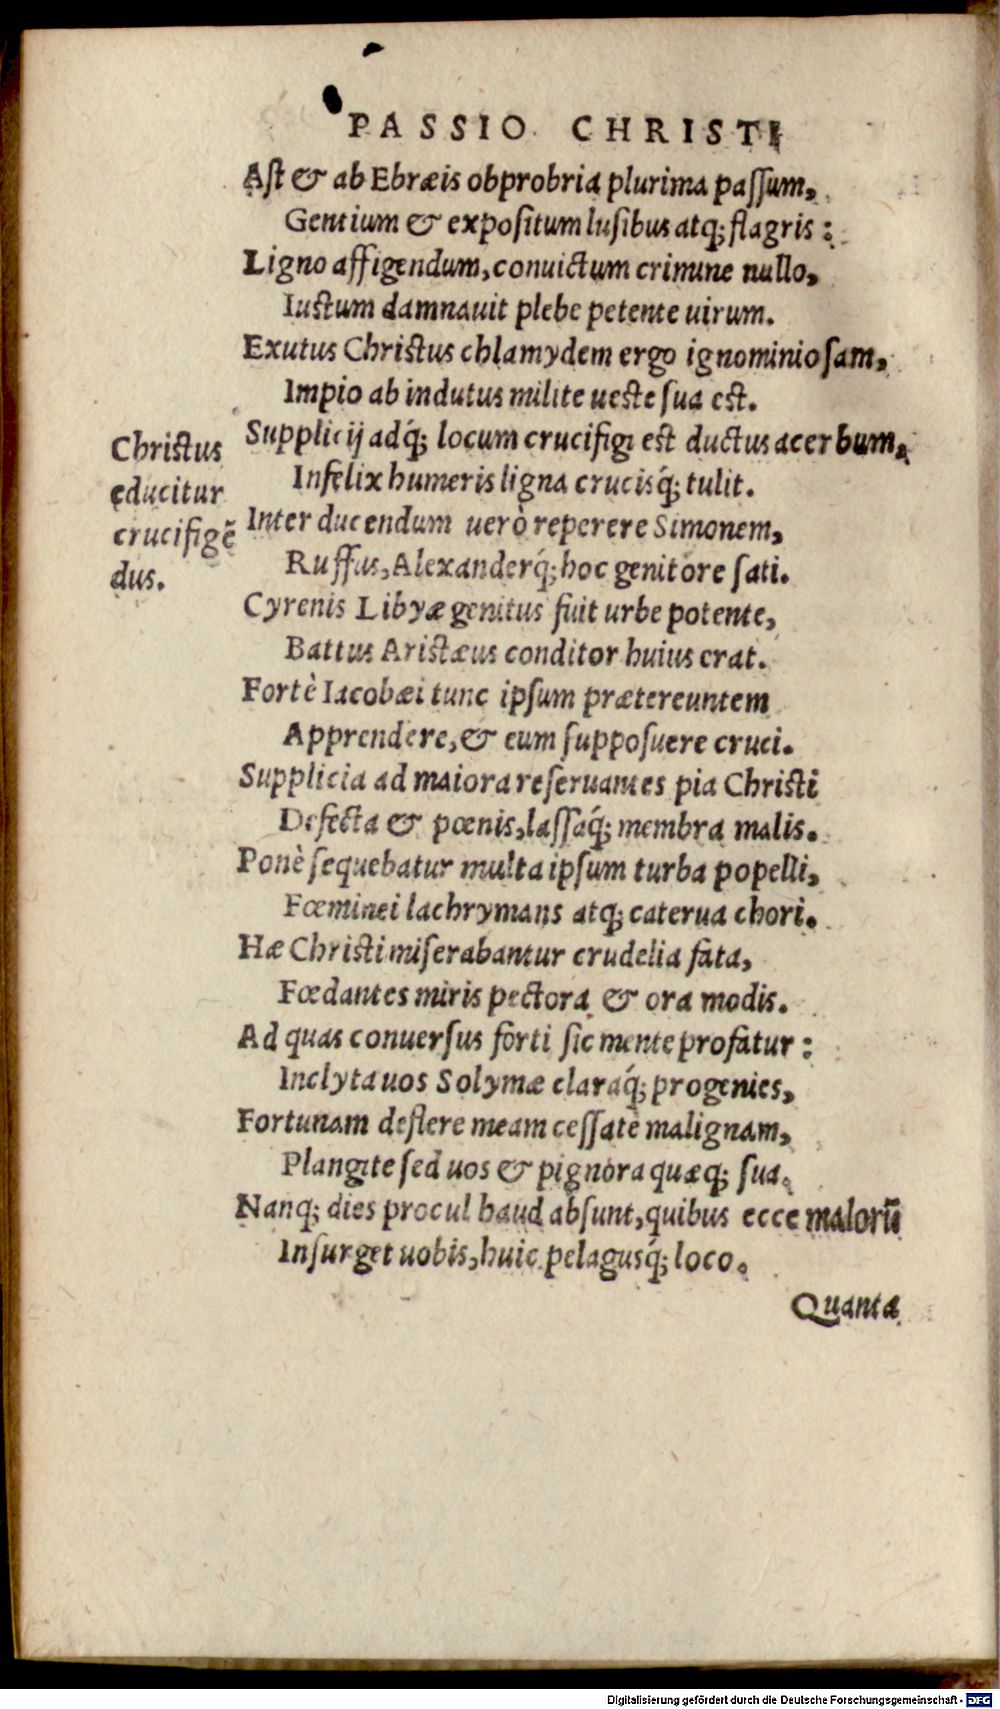 PASSIO CHRISTI
Ast & ab Ebræis obprobria plurima passum,
Gentium & expositum lusibus atq; flagris:
Ligno affigendum, conuictum crimine nullo,
Iustum damnauit plebe petente uirum.
Exutus Christus chlamydem ergo ignominiosam,
Impio ab indutus milite ueste sua est.
Supplicij adq́; locum crucifigi est ductus acerbum,
Infelix humeris ligna crucisq́; tulit.
Christus
educitur
crucifigẽ
dus.
Inter ducendum uerò reperere Simonem,
Ruffus, Alexanderq́; hoc genitore sati.
Cyrenis Libyæ genitus fuit urbe potente,
Battus Aristæus conditor huius erat.
Fortè Iacobæi tunc ipsum prætereuntem
Apprendere, & eum supposuere cruci.
Supplicia ad maiora reseruantes pia Christi
Defecta & pœnis, lassaq́; membra malis.
Ponè sequebatur multa ipsum turba popelli,
Fœminei lachrymans atq; caterua chori.
Hæ Christi miserabantur crudelia fata,
Fœdantes miris pectora & ora modis.
Ad quas conuersus forti sic mente profatur:
Inclyta uos Solymæ claraq́; progenies,
Fortunam deflere meam cessate malignam,
Plangite sed uos & pignora quæq; sua.
Nanq; dies procul haud absunt, quibus ecce malorũ
Insurget uobis, huic pelagusq́; loco.
Quanta
Digitalisierung gefördert durch die Deutsche Forschungsgemeinschaft - DFG